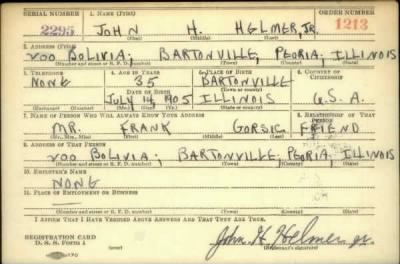 SERIAL NUMBER 1. NAME (Print) ORDER NUMBER
2295 JOHN H. HELMER, JR. 1213
(First) (Middle) (Last)
2. ADDRESS (Print)
200 BOLIVIA. BARTONVILLE, PEORIA, ILLINOIS
(Number and street or R. F. D. number) (Town) (County) (State)
3. TELEPHONE 4. AGE IN YEARS 5. PLACE OF BIRTH 6. COUNTRY OF CITIZENSHIP
NONE 35 BARTONVILLE
DATE OF BIRTH (Town or county)
JULY 14 1905 ILLINOIS U.S.A.
(Exchange) (Number) (Mo.) (Day) (Yr.) (State or country)
7. NAME OF PERSON WHO WILL ALWAYS KNOW YOUR ADDRESS 8. RELATIONSHIP OF THAT PERSON
MR. FRANK GORSIC FRIEND
(Mr., Mrs., Miss) (First) (Middle) (Last)
9. ADDRESS OF THAT PERSON
200 BOLIVIA; BARTONVILLE; PEORIA, ILLINOIS
(Number and street or R. F. D. number) (Town) (County) (State)
10. EMPLOYER'S NAME
NONE
11. PLACE OF EMPLOYMENT OR BUSINESS
—
(Number and street or R. F. D. number) (Town) (County) (State)
I AFFIRM THAT I HAVE VERIFIED ABOVE ANSWERS AND THAT THEY ARE TRUE.
REGISTRATION CARD
D. S. S. Form 1 John H Helmer Jr.
(Registrant's signature)